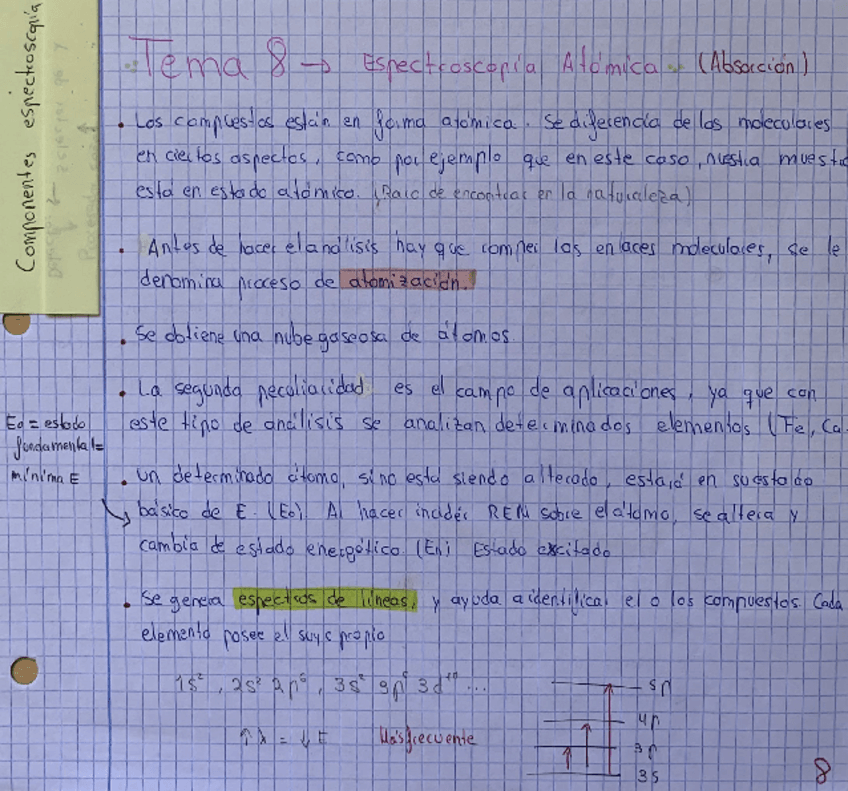 Componentes espectroscopía
Tema 8 → Espectroscopía Atómica (Absorción)
• Los compuestos están en forma atómica. Se diferencia de las moleculares
en ciertos aspectos, como por ejemplo que en este caso, nuestra muestra
está en estado atómico. (Raro de encontrar en la naturaleza)
• Antes de hacer el análisis hay que romper los enlaces moleculares, se le
denomina proceso de atomización.
• Se obtiene una nube gaseosa de átomos.
• La segunda peculiaridad es el campo de aplicaciones, ya que con
este tipo de análisis se analizan determinados elementos (Fe, Ca
E0 = estado
fundamental =
mínima E
• Un determinado átomo, sino está siendo alterado, estará en su estado
básico de E. (E0) Al hacer incidir REM sobre el átomo, se altera y
cambia de estado energético (En) Estado excitado
• Se genera espectros de líneas, y ayuda a identificar el o los compuestos. Cada
elemento posee el suyo propio
1s², 2s² 2p⁶, 3s² 3p⁶ 3d¹⁰ ...
5p
4p
3p
3s
↑λ = ↓E Más frecuente
8